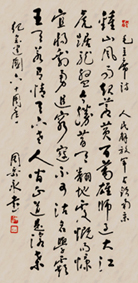 毛主席诗 人民解放军占领南京
钟山风雨起苍黄百万雄师过大江
虎踞龙盘今胜昔天翻地覆慨而慷
宜将剩勇追穷寇不可沽名学霸
王天若有情天亦老人间正道是沧桑
纪念建国六十周年